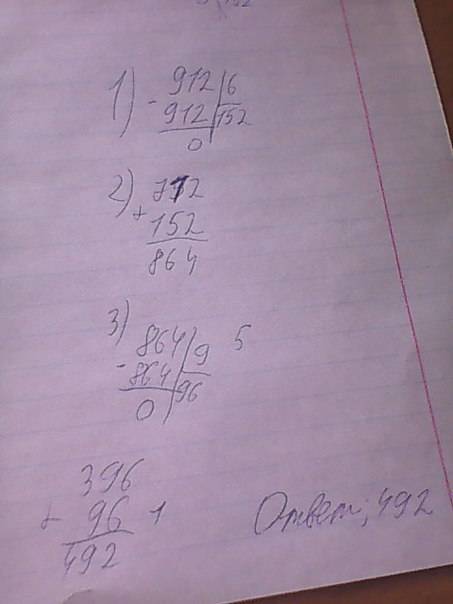 1) - 912 | 6
912 | 152
0
2) + 712
152
864
3) - 864 | 9 5
864 | 96
0
396
+ 96 1
492
Ответ; 492